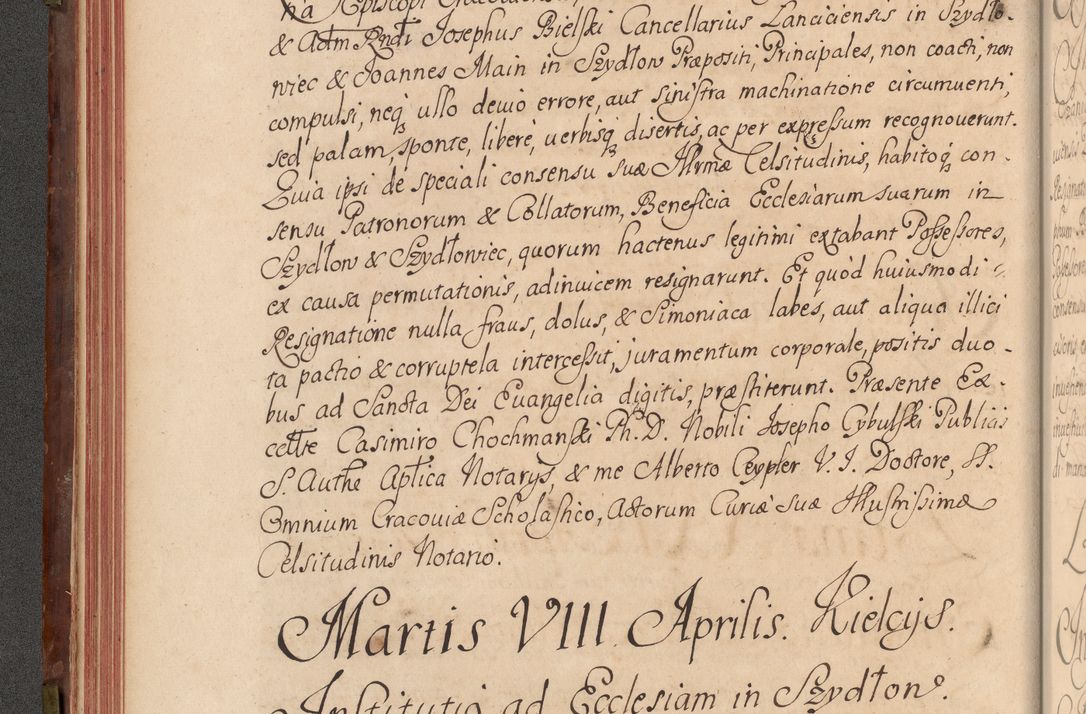 & Adm Rndi Josephus Bielski Cancellarius Lanciciensis in Szydło-
wiec & Joannes Main in Szydłow Præpositi, Principales, non coacti, non
compulsi, neq ullo devio errore, aut sinistra machinatione circumventi,
sed palam, sponte, liberè, verbisq disertis, ac per expressum recognoverunt.
Quia ipsi de speciali consensu suæ Illrmæ Celsitudinis, habitoq con-
sensu Patronorum & Collatorum, Beneficia Ecclesiarum suarum in
Szydłow & Szydłowiec, quorum hactenus legitimi extabant Possessores,
ex causa permutationis, adinvicem resignarunt. Et quòd huiusmodi
Resignatione nulla fraus, dolus, & Simoniaca labes, aut aliqua illici
ta pactio & corruptela intercessit, juramentum corporale, positis duo-
bus ad Sancta Dei Evangelia digitis, præstiterunt. Præsente Ex-
cellte Casimiro Chochmanski Ph. D. Nobili Josepho Cybulski Publicis
S. Authe Aplica Notarys, & me Alberto Ceypler V. I. Doctore, SS.
Omnium Cracoviæ Scholastico, Actorum Curiæ suæ Illustrissimæ
Celsitudinis Notario.
Martis VIII Aprilis. Kielcijs.
Institutio ad Ecclesiam in Szydłow.